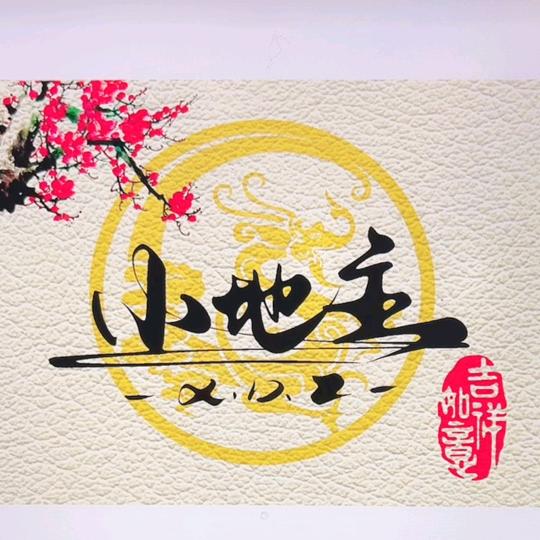 小地主
- X.D.Z -
吉祥
如意